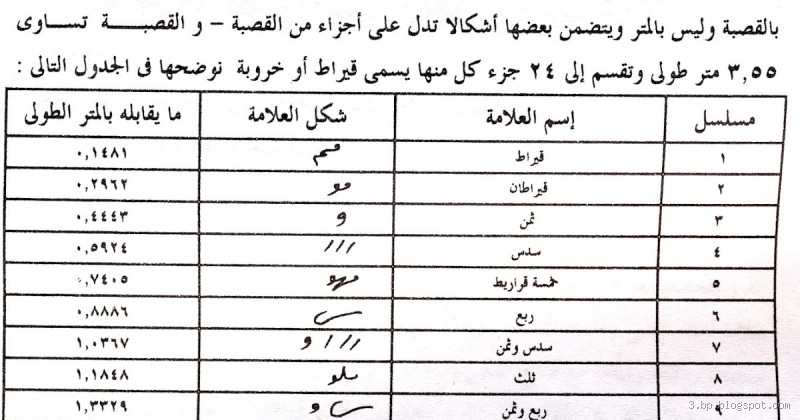 بالقصبة وليس بالمتر ويتضمن بعضها أشكالا تدل على أجزاء من القصبة – و القصبة تساوى
٣,٥٥ متر طولى وتقسم إلى ٢٤ جزء كل منها يسمى قيراط أو خروبة نوضحها فى الجدول التالى :
مسلسل إسم العلامة شكل العلامة ما يقابله بالمتر الطولى
١ قيراط ٠,١٤٨١
٢ قيراطان ٠,٢٩٦٢
٣ ثمن و ٠,٤٤٤٣
٤ سدس ٠,٥٩٢٤
٥ خمسة قراريط ٠,٧٤٠٥
٦ ربع ٠,٨٨٨٦
٧ سدس وثمن ١,٠٣٦٧
٨ ثلث ١,١٨٤٨
٩ ربع وثمن ١,٣٣٢٩
3.bp.blogspot.com